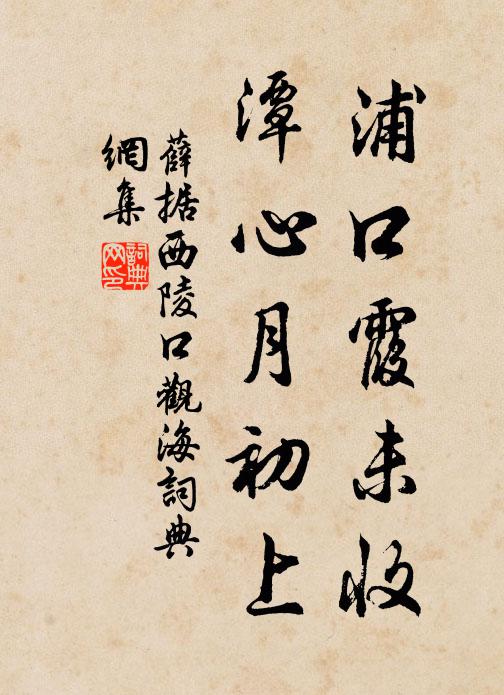 浦口霞未收
潭心月初上
薛据西陵口觀海詞典
網集
詞典
网印